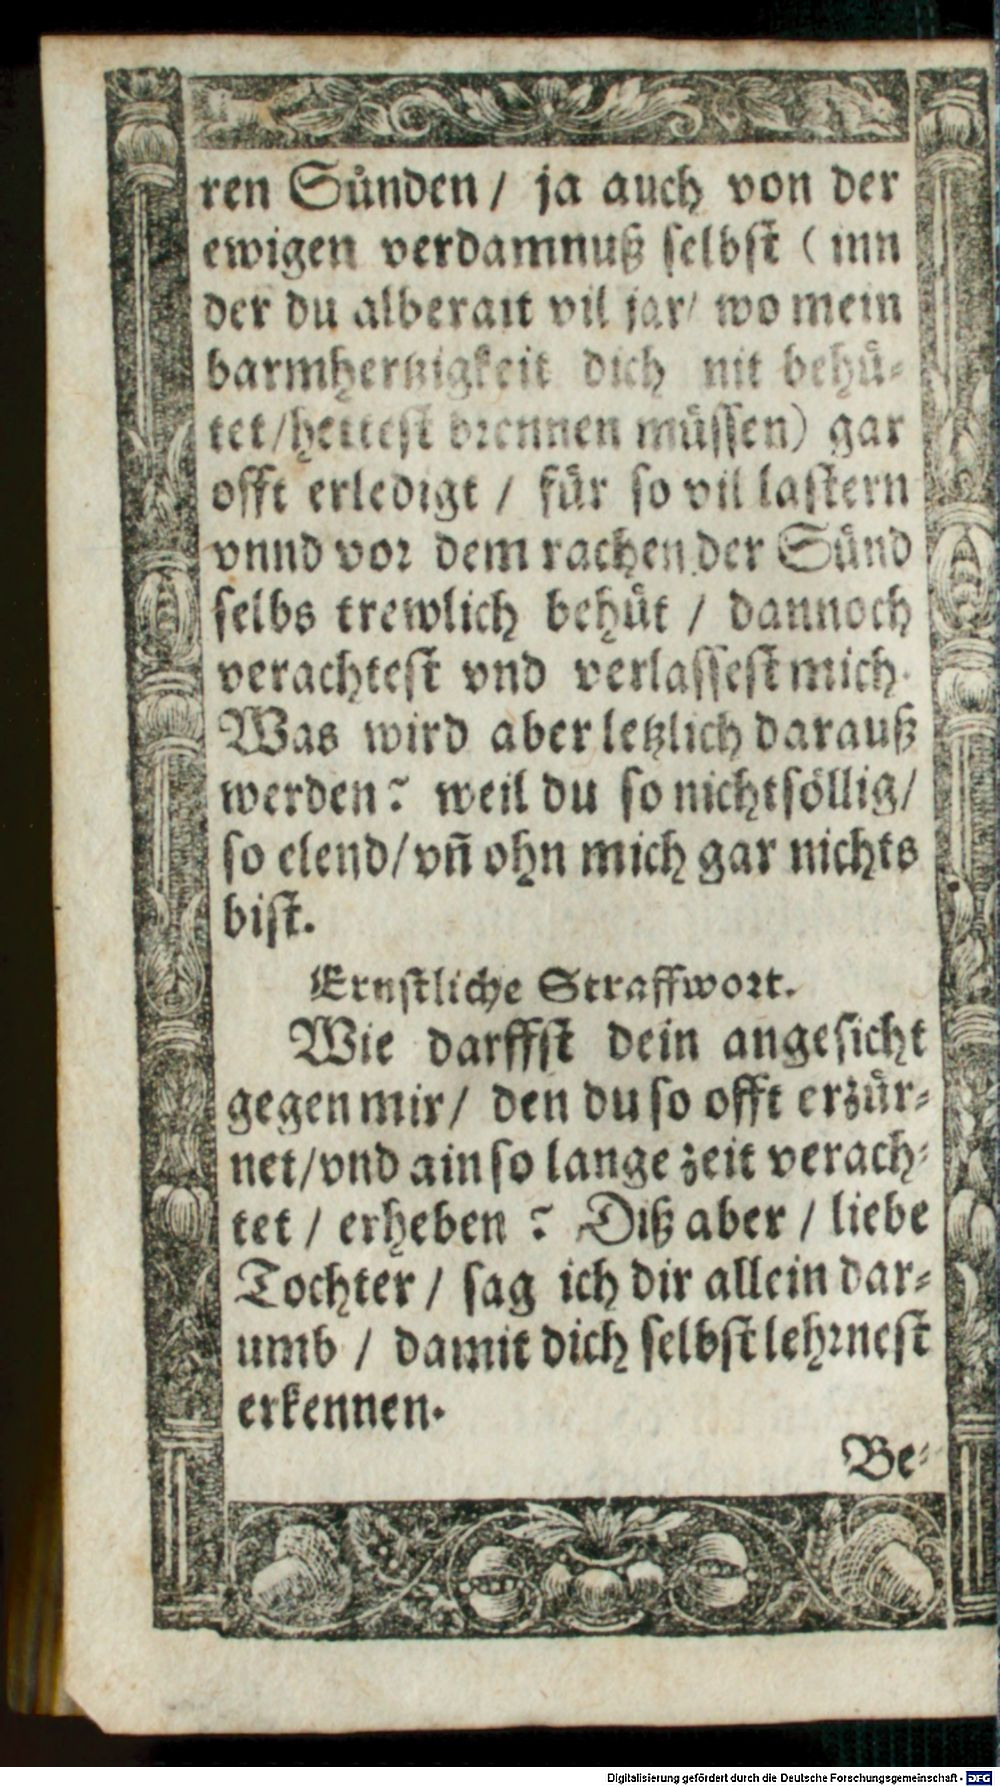 ren Sünden / ja auch von der
ewigen verdamnuß selbst ( inn
der du alberait vil jar/ wo mein
barmhertzigkeit dich nit behü-
tet/hettest brennen müssen) gar
offt erledigt / für so vil lastern
vnnd vor dem rachen der Sünd
selbs trewlich behüt / dannoch
verachtest vnd verlassest mich.
Was wird aber letzlich darauß
werden? weil du so nichtsöllig/
so elend/vñ ohn mich gar nichts
bist.
Ernstliche Straffwort.
Wie darffst dein angesicht
gegen mir/ den du so offt erzür-
net/vnd ain so lange zeit verach-
tet / erheben ? Diß aber / liebe
Tochter / sag ich dir allein dar-
umb / damit dich selbst lehrnest
erkennen.
Be-
Digitalisierung gefördert durch die Deutsche Forschungsgemeinschaft - DFG